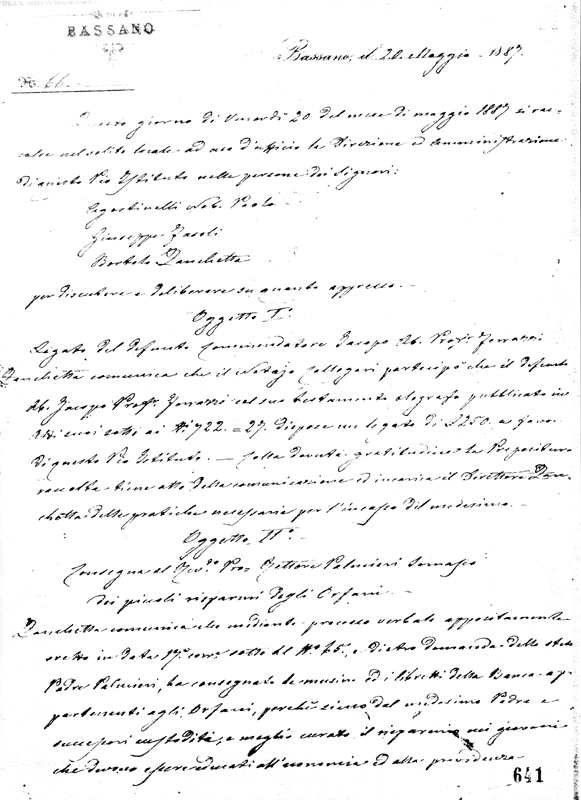 BASSANO
Bassano, il 20 Maggio 1887.
N. 66
giorno di Venerdì 20 del mese di maggio 1887 si rac-
colse nel solito locale ad uso d'ufficio la Direzione ed Amministrazione
di questo Pio Istituto nelle persone dei Signori:
Agostinelli Nob. Paolo
Giuseppe Fasoli
Bortolo Zanchetta
per discutere e deliberare su quanto appresso.
Oggetto I°
Legato del defunto Commendatore Jacopo Ab. Prof. Ferrazzi
Zanchetta comunica che il Notajo partecipò che il defunto
Ab. Jacopo Prof. Ferrazzi col suo testamento olografo pubblicato in
atti suoi sotto ai N. 722 = 27. dispose un legato di £ 250. a favore
di questo Pio Istituto. — Colla dovuta gratitudine la Prepositura
raccolta tiene atto della comunicazione ed incarica il Direttore Zan-
chetta delle pratiche necessarie per l'incasso del medesimo.
Oggetto II°
Consegna al Rev.° Pro Rettore Palmieri Somasco
dei piccoli risparmi degli Orfani.
Zanchetta comunica che mediante processo verbale appositamente
eretto in data 17. corr. sotto al N° 65, e dietro domanda dello stesso
Padre Palmieri, ha consegnato le musine ed i libretti della Banca ap-
partenenti agli Orfani, perchè sieno dal medesimo Padre e
successori custodite, e meglio curato il risparmio nei giovani
che devono essere educati all'economia ed alla previdenza
641